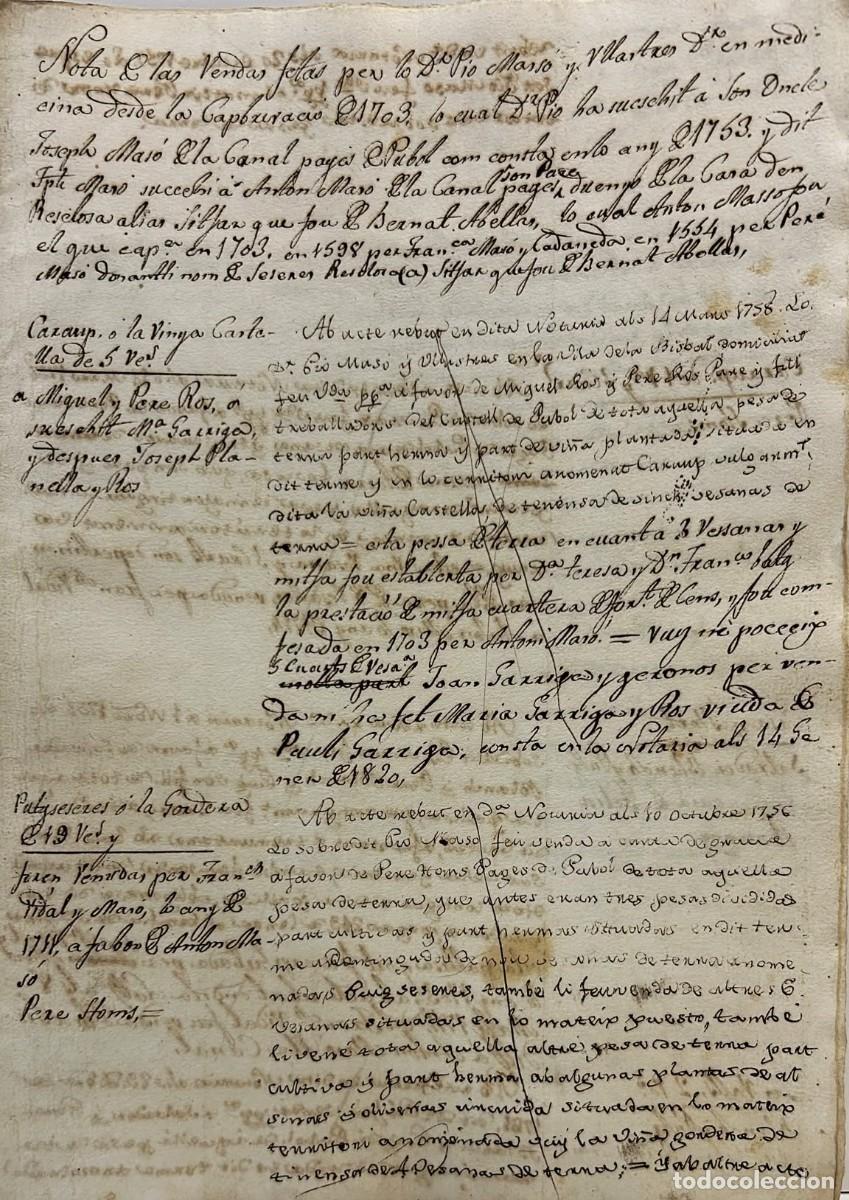 Nota de las Vendas fetas per lo Dr. Pio Masó y Ullastres Dr. en medi-
cina desde la Capbrevació de 1703. lo cual Dr. Pio ha suceshit á son Oncle
Joseph Masó de la Canal pages de Pubol com consta en lo any de 1753. y dit
Jph Masó succehi á Anton Masó de la Canal pages, son Pare duenyo de la Casa den
Reselosa alias Sitjar que fou de Bernat Abellas, lo cual Anton Masso fou
el que capa. en 1703. en 1598 per Franca. Masó y Cadaneda. en 1554 per Pere
Masó donantli nom de Seseres Resolosa (a) Sitjar que fou de Bernat Abellas,
Caraup. ó la Vinya Caste-
lla de 5 Ves.
a Miguel y Pere Ros, á
sucshit Ma. Garriga,
y despues Joseph Pla-
nella y Ros
Ab acte rebut en dita Notaria als 14 Mars 1758. Lo
Dr. Pio Masó y Ullastres en la Vila de la Bisbal domiciliat
feu Vda. ppa. a favor de Miguel Ros y Pere Ros Pare y fill
treballadors del Castell de Pubol de tota aquella pesa de
terra part herma y part de viña plantada, situada en
dit terme y en lo territori anomenat Caraup vulgarmt.
dita la viña Castella de tenensa de sinch vesanas de
terra = esta pessa de terra en cuant á 3 Vessanas y
mitja fou establerta per Da. teresa y Dn. Franco. batg
la prestació de mitja cuartera de fort. de Cens, y fou com-
fesada en 1703 per Antoni Masó. = Vuy ne posceix
5 Cuarts de Vesa.
Joan Garriga y Geronos per ven-
da ni ha fet Maria Garriga y Ros viuda de
Pauli Garriga, consta en la Notaria als 14 Ge
ner de 1820,
Putgseseres ó la Gordera
de 19 Ves. y
foren Venudas per Franch
Vidal y Masó, lo any de
1711, á fabor de Anton Ma-
só
Pere Homs, =
Ab acte rebut en da. Notaria als 10 Octubre 1756
Lo sobredit Pio Maso feu venda a carta de gracia
a favor de Pere Homs Pages de Pubol de tota aquella
pesa de terra, que antes eran tres pesas divididas
part cultivas y part hermas situadas en dit ter-
me de tinguda de nou vesanas de terra anome-
nadas Puigseseres, també li feu venda de altres 6
vesanas situadas en lo mateix puesto, també
li vené tota aquella altre pesa de terra part
cultiva y part herma ab algunas plantas de al
sinas y oliveras incuida situada en lo mateix
territori anomenada vuy la viña gordera de
tinensa de 4 Vesanas de terra, = y ab altre acte
todocoleccion